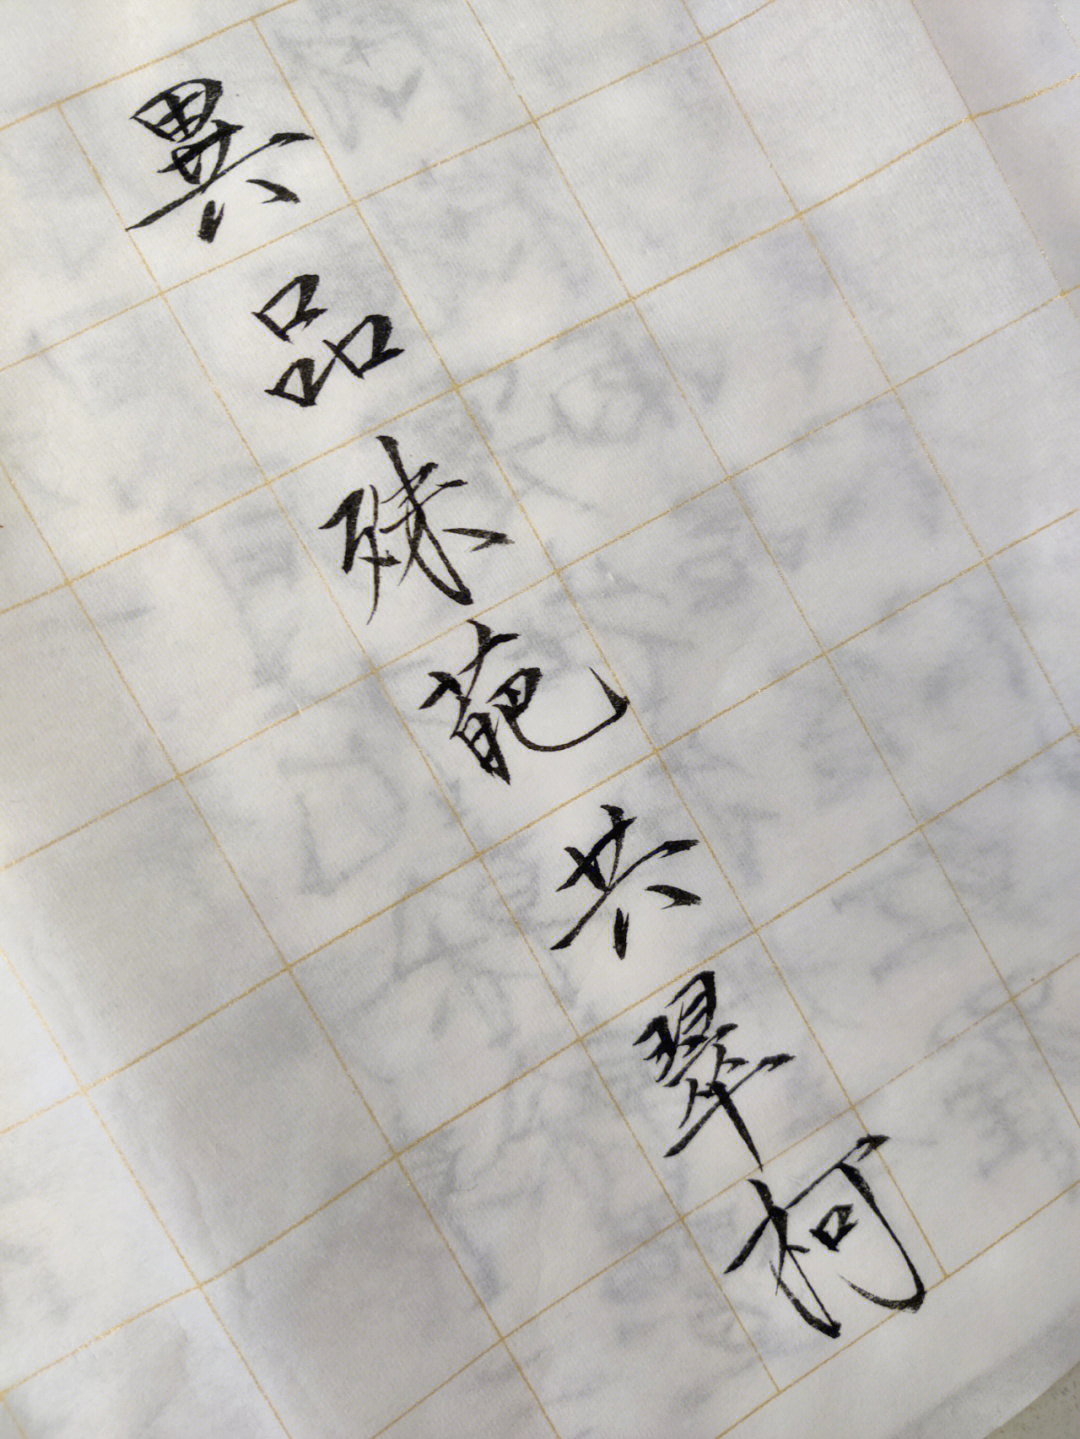 異品殊葩共翠柯